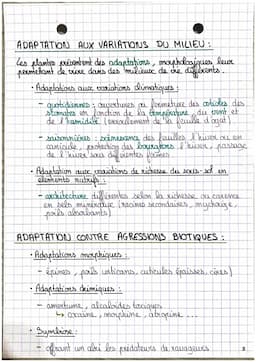 ADAPTATION AUX VARIATIONS DU MILIEU :
Les plantes présentent des adaptations morphologiques leur
permettant de vivre dans des milieux de vie différents.
• Adaptations aux variations climatiques :
- quotidiennes : ouvertures ou fermeture des ostioles des
stomates en fonction de la température, du vent et
de l'humidité (enroulement de la feuille d'oyat)
- saisonnières : sénescence des feuilles l'hiver ou en
canicule, protection des bourgeons l'hiver, passage
de l'hiver sous différentes formes
• Adaptation aux variations de richesse du sous-sol en
éléments nutritifs :
- architecture différentes selon la richesse ou carence
en sels minéraux (racines secondaires, mycorhize,
poils absorbants)
ADAPTATION CONTRE AGRESSIONS BIOTIQUES :
• Adaptations morphiques :
- épines, poils urticants, cuticules épaisses, cires)
• Adaptations chimiques :
- amertume, alcaloïdes toxiques
↳ cocaïne, morphine, atropine ...
• Symbiose :
- offrant un abri les prédateurs de ravageurs